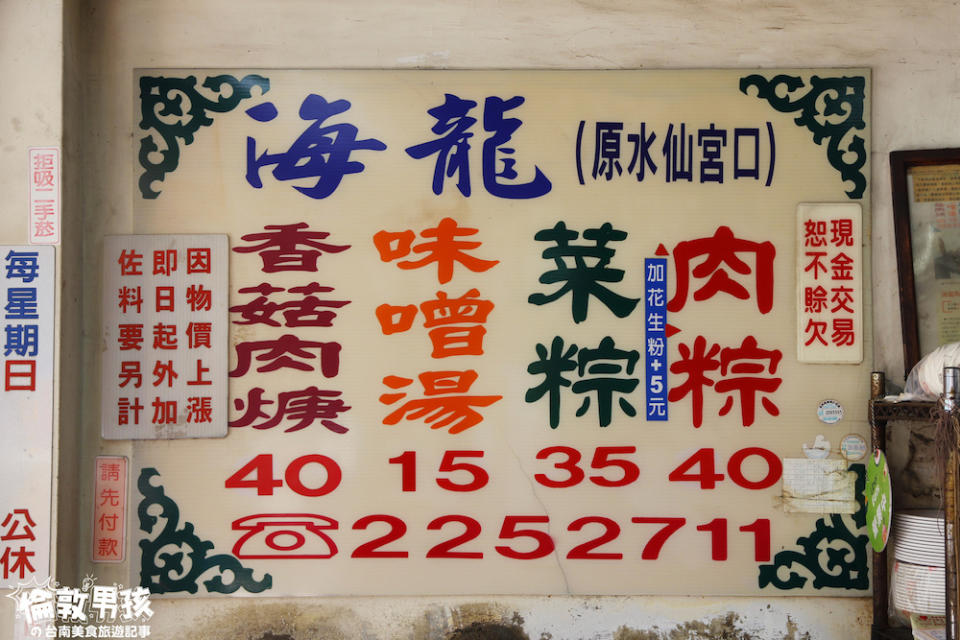 海龍(原水仙宮口)
肉粽
加花生粉+5元
菜粽
味噌湯
香菇肉焿
40 15 35 40
☏2252711
現金交易
恕不賒欠
因物價上漲
即日起外加
佐料要另計
請先付款
拒吸二手菸
每星期日
公休
倫敦男孩
の台南美食旅遊記事